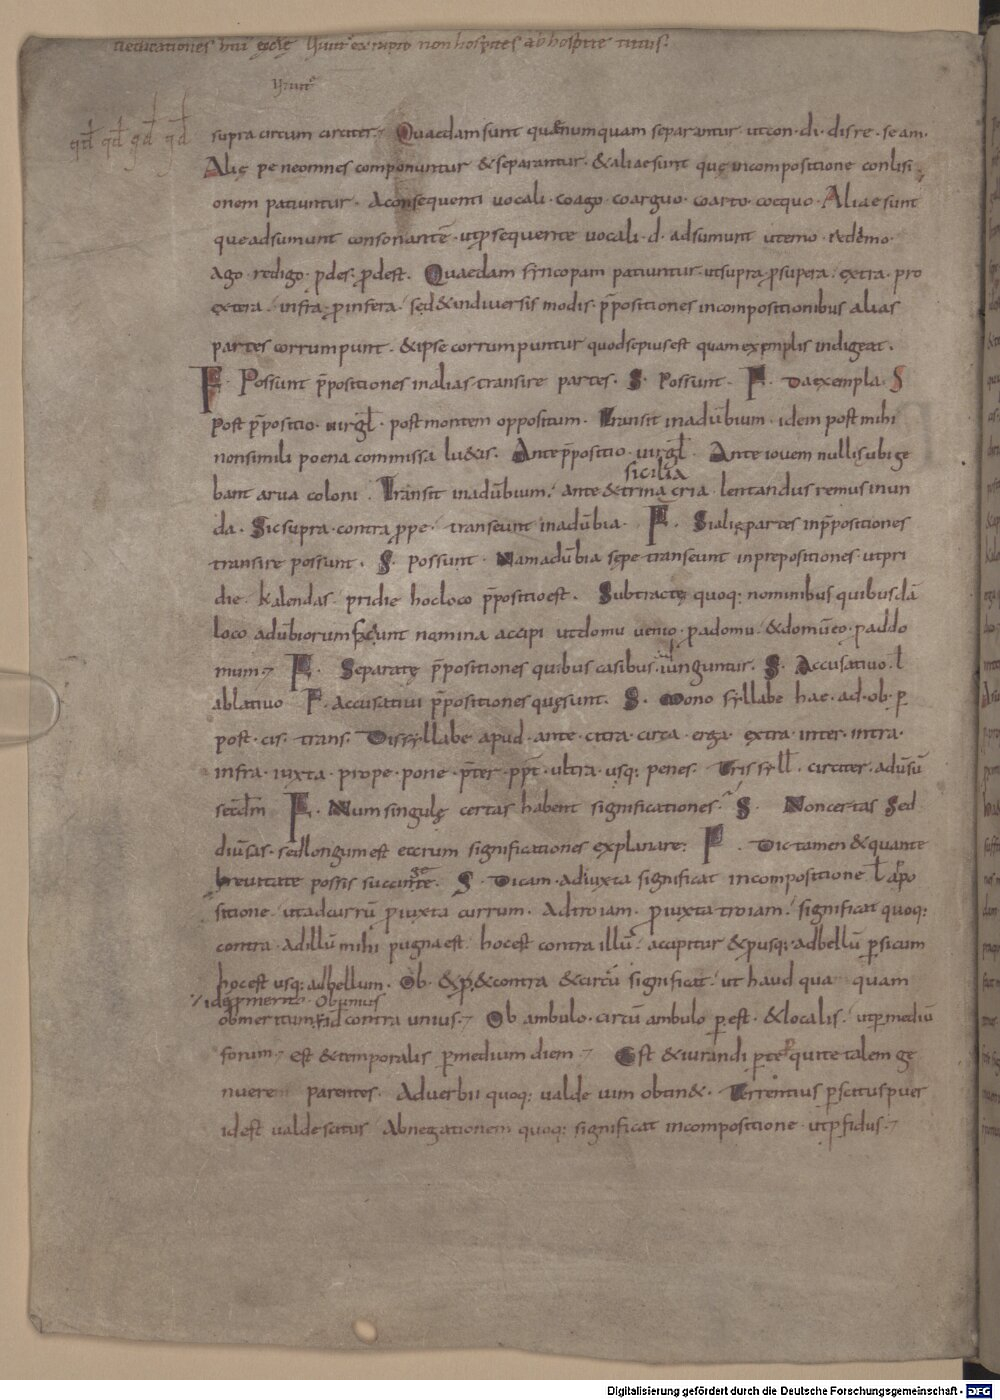 dedicationes hui ęcclę non hospites ab hospite titus.
qđ qđ qđ qđ
supra circum circiter. Quaedam sunt quae numquam separantur. ut con. di. dis re. se am.
Alię pene omnes componuntur & separantur. & aliae sunt quę in compositione conlisi
onem patiuntur. A consequenti vocali. coago. coarguo. coarto. cocquo. Aliae sunt
que adsumunt consonantē. ut p̄ sequente vocali. d. adsumunt ut emo. redemo.
ago. redigo. pdes. pdest. Quaedam syncopam patiuntur. ut supra. p supera. extra. pro
extera. infra. p infera. sed & in diversis modis. p̄positiones in compositionibus alias
partes corrumpunt. & ipse corrumpuntur quod sepius est quam exemplis indigeat.
F. Possunt p̄positiones in alias transire partes. S. Possunt. F. Da exempla. S
Post p̄positio. virgl̄. post montem oppositum. Transit in adūbium. idem post mihi
non simili poena commissa luetis. Ante p̄positio. virgl̄. Ante iovem nulli subige
sicilia
bant arva coloni. Transit in adūbium. ante & trinacria lentandus remus in un
da. Sic supra. contra. ppe. transeunt in adūbia. F. Si alię partes in p̄positiones
transire possunt. S. possunt. Nam adūbia sepe transeunt in prepositiones. ut pri
die. kalendas. pridie hoc loco p̄positio est. Subtractę quoq: nominibus quibusdā
loco adūbiorum faciunt nomina accipi ut domu venio. p a domu. & domū eo. p ad do
mum. F. Separatę p̄positiones quibus casibus iunguntur. S. Accusativo. ł
ablativo F. accusativi p̄positiones quę sunt. S. Mono syllabe hae. ad. ob. p
post. cis. trans. Dissyllabe apud. ante. citra. circa. erga. extra. inter. intra.
infra. iuxta. prope. pone. p̄ter. ppt̄. ultra. usq: penes. Tris syll̄. circiter. adūsū
secd̄m F. Num singulę certas habent significationes. S. Non certas Sed
diūsas. sed longum est etcrum significationes explanare: F. Dic tamen & quante
ge
brevitate possis succinte. S. Dicam. ad iuxta significat in compositione ł apo
sitione. ut ad currū p iuxta currum. Ad troiam. p iuxta troiam. significat quoq:
contra. Ad illū mihi pugna est. hoc est contra illū. accipitur & p usq: ad bellū p̱sicum
hoc est usq: ad bellum. Ob. & p, & contra & circū significat. ut haud qua quam
ob meritum. id contra unius. Ob ambulo. circū ambulo p̱. est. & localis. ut p̱ mediū
forum. est & temporalis p̱ medium diem. Est & iurandi p̱ te qui te talem ge
nuere parentes. Adverbii quoq: valde vim obtin&. Terrentius p̱scitus puer
id est valde scitus Abnegationem quoq: significat in compositione. ut p̱fidus.
Digitalisierung gefördert durch die Deutsche Forschungsgemeinschaft - DFG